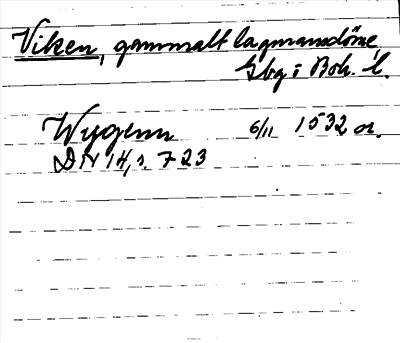 Viken, gammalt lagmansdöme,
Gbg i Boh. l.
Wygenn 6/11 1532 or.
DN 14, s. 723